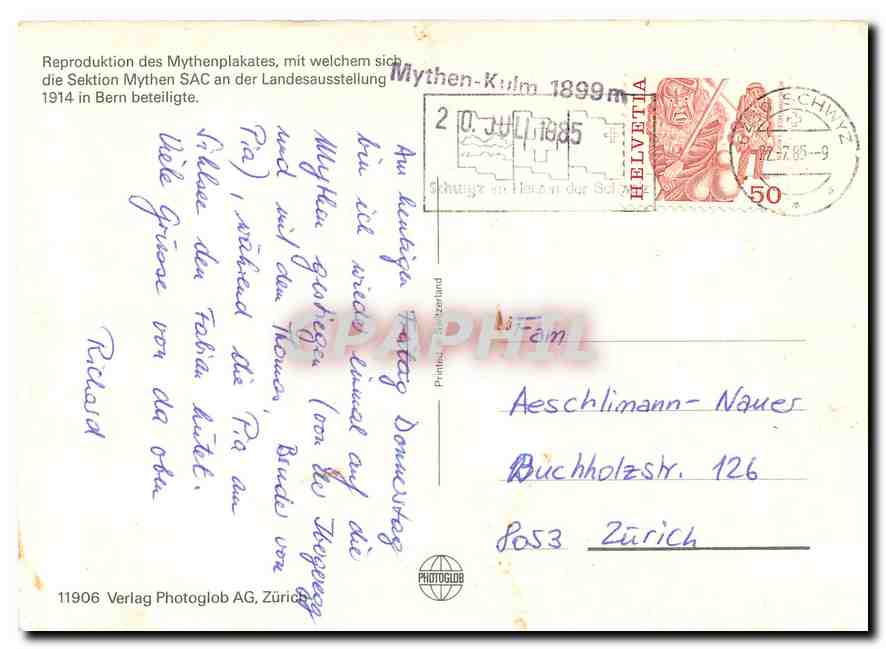 Reproduktion des Mythenplakates, mit welchem sich
die Sektion Mythen SAC an der Landesausstellung
1914 in Bern beteiligte.
Mythen-Kulm 1899 m
20. JULI 1985
Schwyz im Herzen der Schweiz
HELVETIA
50
SCHWYZ
22.-7.85--9
Am heutigen Freitag Donnerstag
bin ich wieder einmal auf die
Mythen gestiegen (von der Ibergeregg
und mit dem Thomas, Bruder von
Pia), während die Pia am
Sihlsee den Fabian hütet.
Viele Grüsse von da oben
Richard
Fam
Aeschlimann-Nauer
Buchholzstr. 126
8053 Zürich
Printed in Switzerland
PHOTOGLOB
11906 Verlag Photoglob AG, Zürich
CPAPHIL